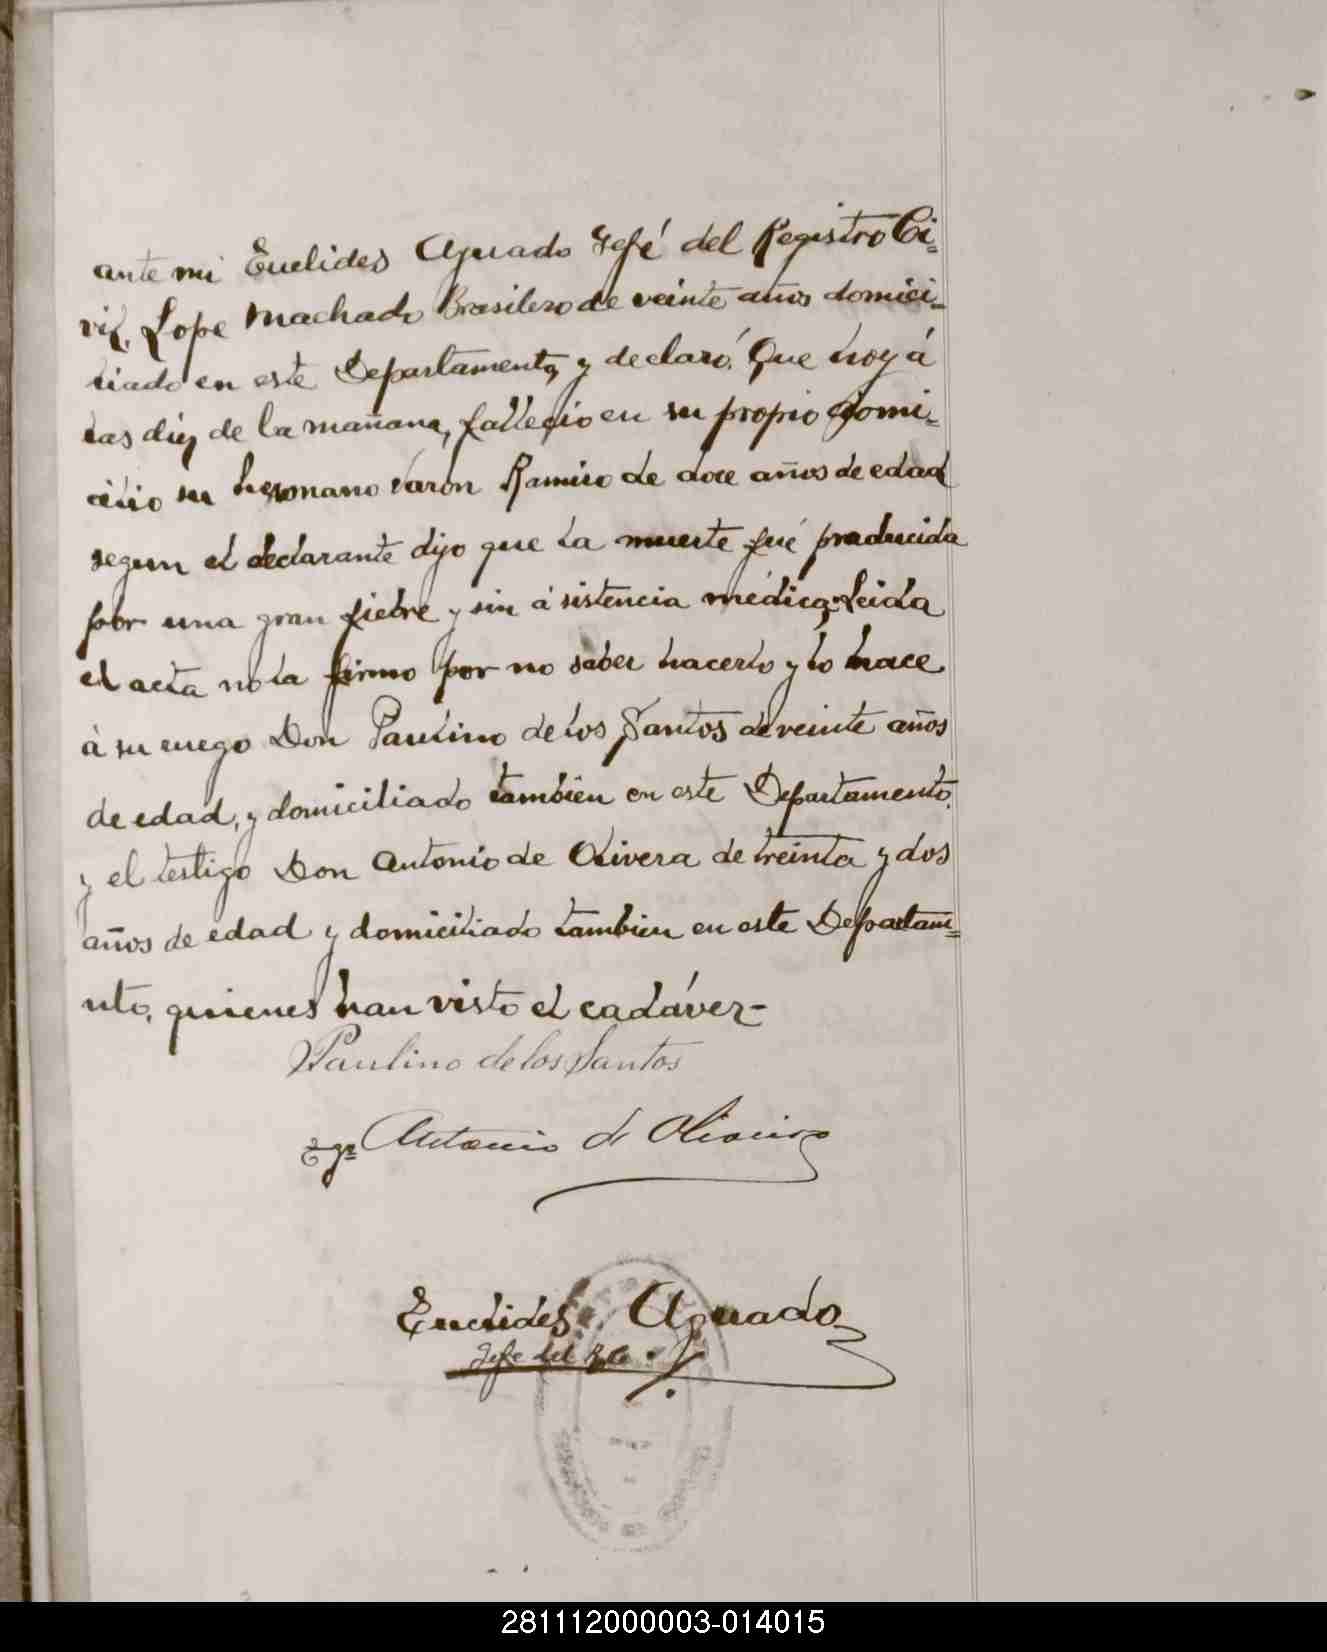 ante mi Euclides Aguado Jefé del Registro Ci=
vil, Lope Machado Brasilero de veinte años domici=
liado en este Departamento, y declaró: Que hoy á
las diez de la mañana, fallecio en su propio domi=
cilio su hermano varon Ramiro de doce años de edad
segun el declarante dijo que la muerte fué producida
por una gran fiebre y sin ásistencia médica; Leida
el acta no la firmo por no saber hacerlo y lo hace
à su ruego Don Paulino de los Santos de veinte años
de edad, y domiciliado tambien en este Departamento,
y el testigo Don Antonio de Olivera de treinta y dos
años de edad y domiciliado tambien en este Departam=
nto, quienes han visto el cadáver-
Paulino de los Santos
Tgo Antonio de Oliveira
Euclides Aguado
Jefe del R. C.
281112000003-014015